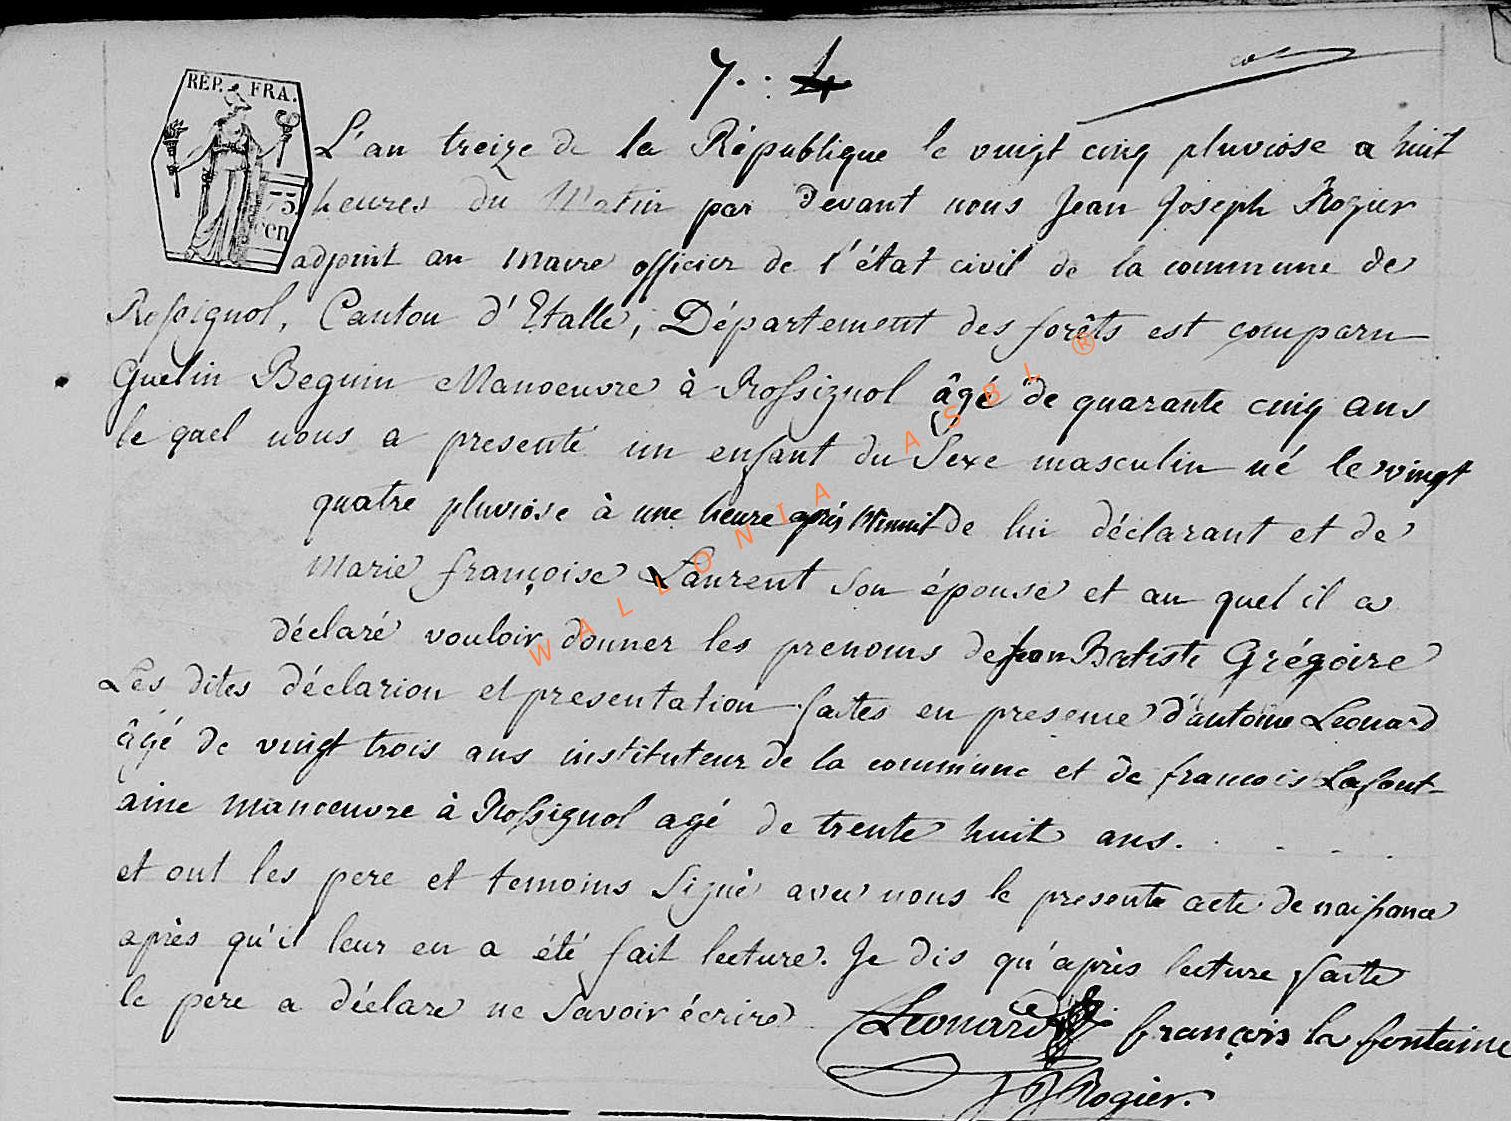 7. : 4
RÉP. FRA.
75
cen
L'an treize de la République le vingt cinq pluviose a huit
heures du Matin par devant nous Jean Joseph Rogier
adjoint au maire officier de l'état civil de la commune de
Rossignol, Canton d'Etalle, Département des forêts est comparu
Guelin Beguin Manoeuvre à Rossignol âgé de quarante cinq ans
le quel nous a presenté un enfant du Sexe masculin né le vingt
quatre pluviose à une heure après Minuit de lui déclarant et de
Marie françoise Laurent son épouse et au quel il a
déclaré vouloir donner les prenoms de Jean Batiste Grégoire
Les dites déclarion et presentation faites en presence d'antoine Leonard
âgé de vingt trois ans instituteur de la commune et de francois Lafont-
aine manoeuvre à Rossignol agé de trente huit ans. . . . .
et ont les pere et temoins Signé avec nous le presente acte de naissance
après qu'il leur en a été fait lecture. Je dis qu'après lecture faite
le pere a déclaré ne Savoir écrire
Leonard françois la fontaine
J J Rogier.
WALLONIA ASBL ®